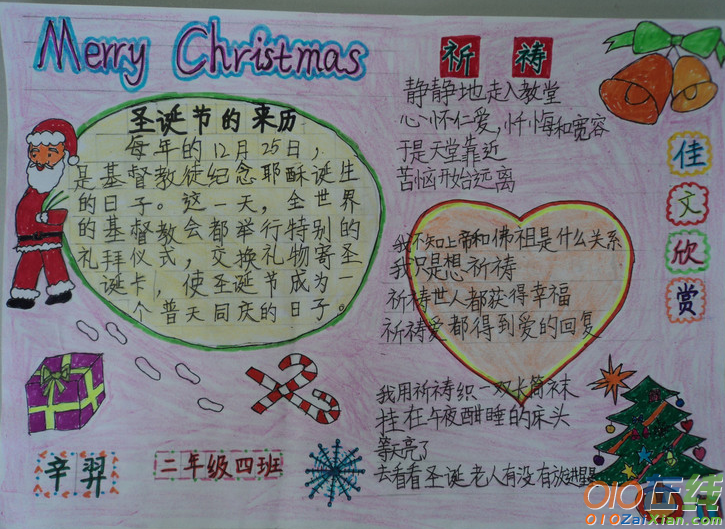 Merry Christmas
圣诞节的来历
每年的12月25日，
是基督教徒纪念耶酥诞生
的日子。这一天，全世界
的基督教会都举行特别的
礼拜仪式，交换礼物寄圣
诞卡，使圣诞节成为一
个普天同庆的日子。
辛羿
二年级四班
祈祷
静静地走入教堂
心怀仁爱，忏悔和宽容
于是天堂靠近
苦恼开始远离
我不知上帝和佛祖是什么关系
我只是想祈祷
祈祷世人都获得幸福
祈祷爱都得到爱的回复
我用祈祷织一双长筒袜
挂在午夜酣睡的床头
等天亮了
去看看圣诞老人有没有放进
佳文欣赏
010在线
010ZaiXian.com